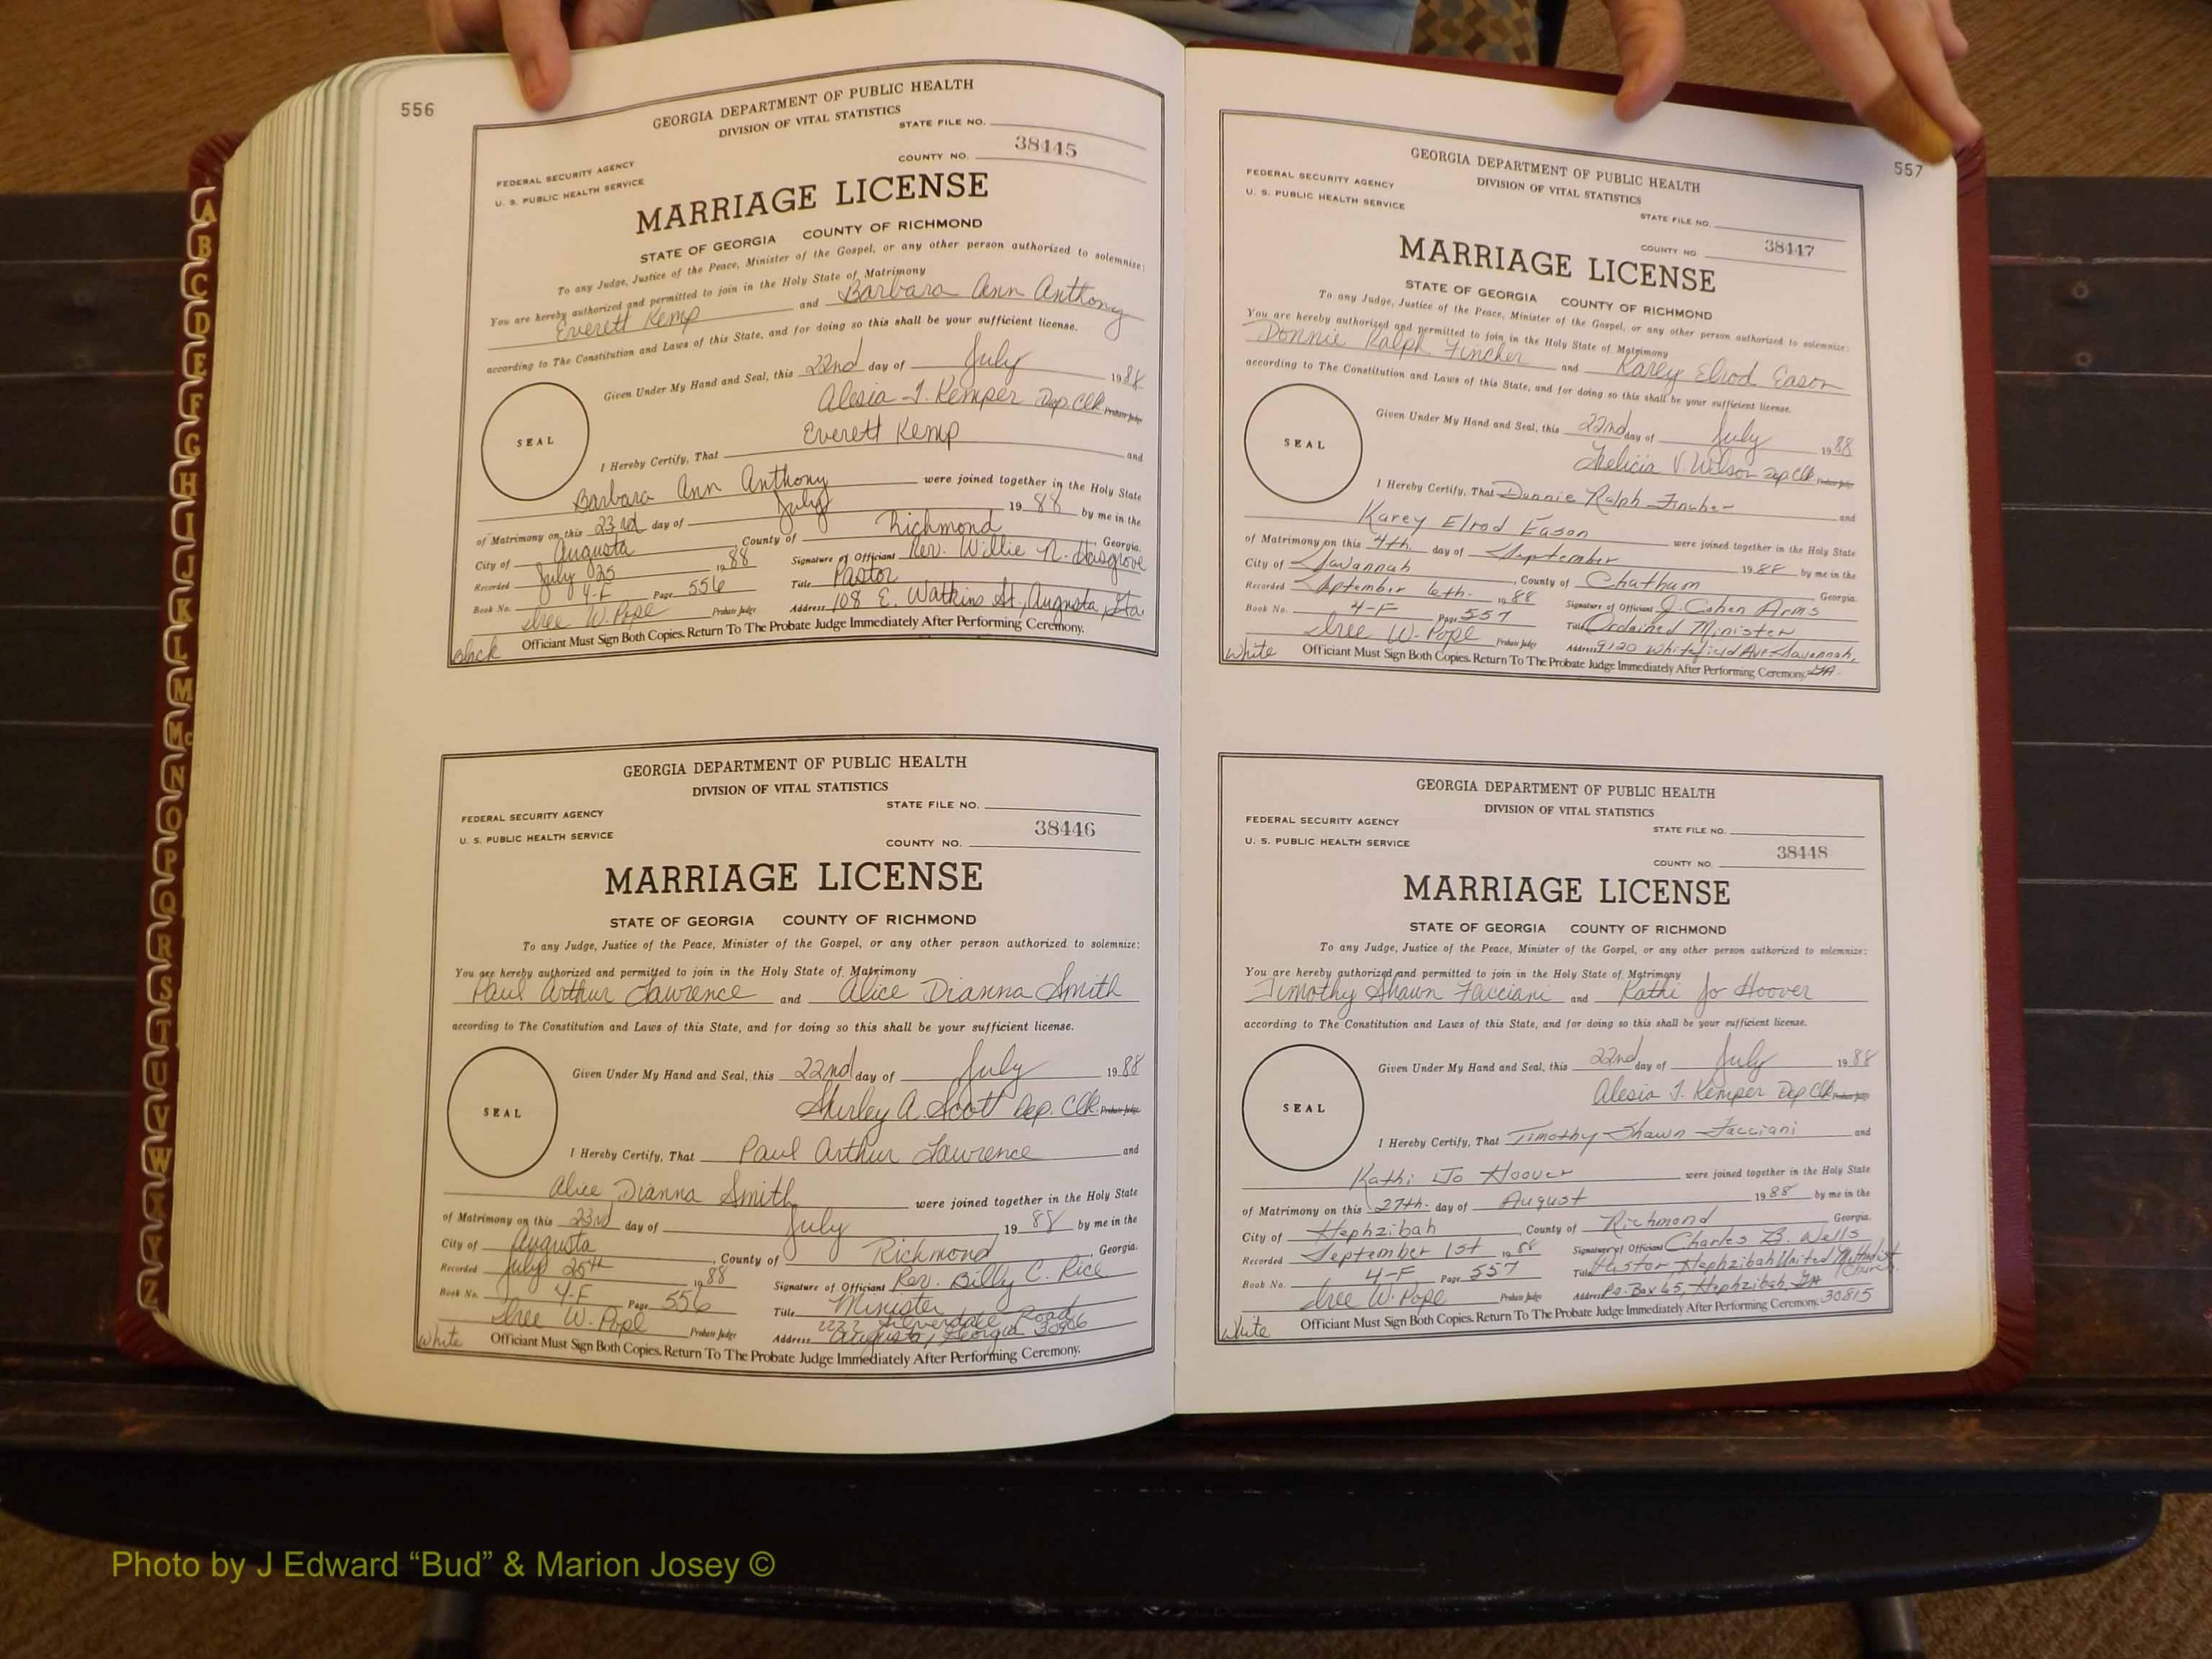 556
GEORGIA DEPARTMENT OF PUBLIC HEALTH
DIVISION OF VITAL STATISTICS
STATE FILE NO.
38445
COUNTY NO.
FEDERAL SECURITY AGENCY
U. S. PUBLIC HEALTH SERVICE
MARRIAGE LICENSE
STATE OF GEORGIA COUNTY OF RICHMOND
To any Judge, Justice of the Peace, Minister of the Gospel, or any other person authorized to solemnize:
You are hereby authorized and permitted to join in the Holy State of Matrimony
Everett Kemp and Barbara Ann Anthony
according to The Constitution and Laws of this State, and for doing so this shall be your sufficient license.
Given Under My Hand and Seal, this 22nd day of July 1988
Alesia J. Kemper Dep. Clk. Probate Judge
SEAL
I Hereby Certify, That Everett Kemp and
Barbara Ann Anthony were joined together in the Holy State
of Matrimony on this 23rd day of July 1988 by me in the
City of Augusta, County of Richmond, Georgia.
Recorded July 25 1988 Signature of Officiant Rev. Willie N. Hasgrove
Book No. 4-F Page 556 Title Pastor
Isree W. Pope Probate Judge Address 108 E. Watkins St., Augusta, Ga.
Black Officiant Must Sign Both Copies. Return To The Probate Judge Immediately After Performing Ceremony.
GEORGIA DEPARTMENT OF PUBLIC HEALTH
DIVISION OF VITAL STATISTICS
STATE FILE NO.
38446
COUNTY NO.
FEDERAL SECURITY AGENCY
U. S. PUBLIC HEALTH SERVICE
MARRIAGE LICENSE
STATE OF GEORGIA COUNTY OF RICHMOND
To any Judge, Justice of the Peace, Minister of the Gospel, or any other person authorized to solemnize:
You are hereby authorized and permitted to join in the Holy State of Matrimony
Paul Arthur Lawrence and Alice Dianna Smith
according to The Constitution and Laws of this State, and for doing so this shall be your sufficient license.
Given Under My Hand and Seal, this 22nd day of July 1988
Shirley A. Scott Dep. Clk. Probate Judge
SEAL
I Hereby Certify, That Paul Arthur Lawrence and
Alice Dianna Smith were joined together in the Holy State
of Matrimony on this 23rd day of July 1988 by me in the
City of Augusta, County of Richmond, Georgia.
Recorded July 25th 1988 Signature of Officiant Rev. Billy C. Rice
Book No. 4-F Page 556 Title Minister
2222 Silverdale Road
Isree W. Pope Probate Judge Address Augusta, Georgia 30906
White Officiant Must Sign Both Copies. Return To The Probate Judge Immediately After Performing Ceremony.
557
GEORGIA DEPARTMENT OF PUBLIC HEALTH
DIVISION OF VITAL STATISTICS
STATE FILE NO.
38447
COUNTY NO.
FEDERAL SECURITY AGENCY
U. S. PUBLIC HEALTH SERVICE
MARRIAGE LICENSE
STATE OF GEORGIA COUNTY OF RICHMOND
To any Judge, Justice of the Peace, Minister of the Gospel, or any other person authorized to solemnize:
You are hereby authorized and permitted to join in the Holy State of Matrimony
Donnie Ralph Fincher and Karey Elrod Eason
according to The Constitution and Laws of this State, and for doing so this shall be your sufficient license.
Given Under My Hand and Seal, this 22nd day of July 1988
Felicia V. Wilson Dep Clk Probate Judge
SEAL
I Hereby Certify, That Donnie Ralph Fincher and
Karey Elrod Eason were joined together in the Holy State
of Matrimony on this 4th. day of September 1988 by me in the
City of Savannah, County of Chatham Georgia.
Recorded September 6th. 1988 Signature of Officiant J. Cohen Arms
Book No. 4-F Page 557 Title Ordained Minister
Isree W. Pope Probate Judge Address 9120 Whitefield Ave Savannah,
White Officiant Must Sign Both Copies. Return To The Probate Judge Immediately After Performing Ceremony. GA.
GEORGIA DEPARTMENT OF PUBLIC HEALTH
DIVISION OF VITAL STATISTICS
STATE FILE NO.
38448
COUNTY NO.
FEDERAL SECURITY AGENCY
U. S. PUBLIC HEALTH SERVICE
MARRIAGE LICENSE
STATE OF GEORGIA COUNTY OF RICHMOND
To any Judge, Justice of the Peace, Minister of the Gospel, or any other person authorized to solemnize:
You are hereby authorized and permitted to join in the Holy State of Matrimony
Timothy Shawn Facciani and Kathi Jo Hoover
according to The Constitution and Laws of this State, and for doing so this shall be your sufficient license.
Given Under My Hand and Seal, this 22nd day of July 1988
Alesia J. Kemper Dep Clk Probate Judge
SEAL
I Hereby Certify, That Timothy Shawn Facciani and
Kathi Jo Hoover were joined together in the Holy State
of Matrimony on this 27th. day of August 1988 by me in the
City of Hephzibah, County of Richmond Georgia.
Recorded September 1st 1988 Signature of Officiant Charles B. Wells
Book No. 4-F Page 557 Title Pastor, Hephzibah United Methodist Church
Isree W. Pope Probate Judge Address P.O. Box 65, Hephzibah, GA
White Officiant Must Sign Both Copies. Return To The Probate Judge Immediately After Performing Ceremony. 30815
A
B
C
D
E
F
G
H
I
J
K
L
M
Mc
N
O
P
Q
R
S
T
U
V
W
X
Y
Z
Photo by J Edward “Bud” & Marion Josey ©